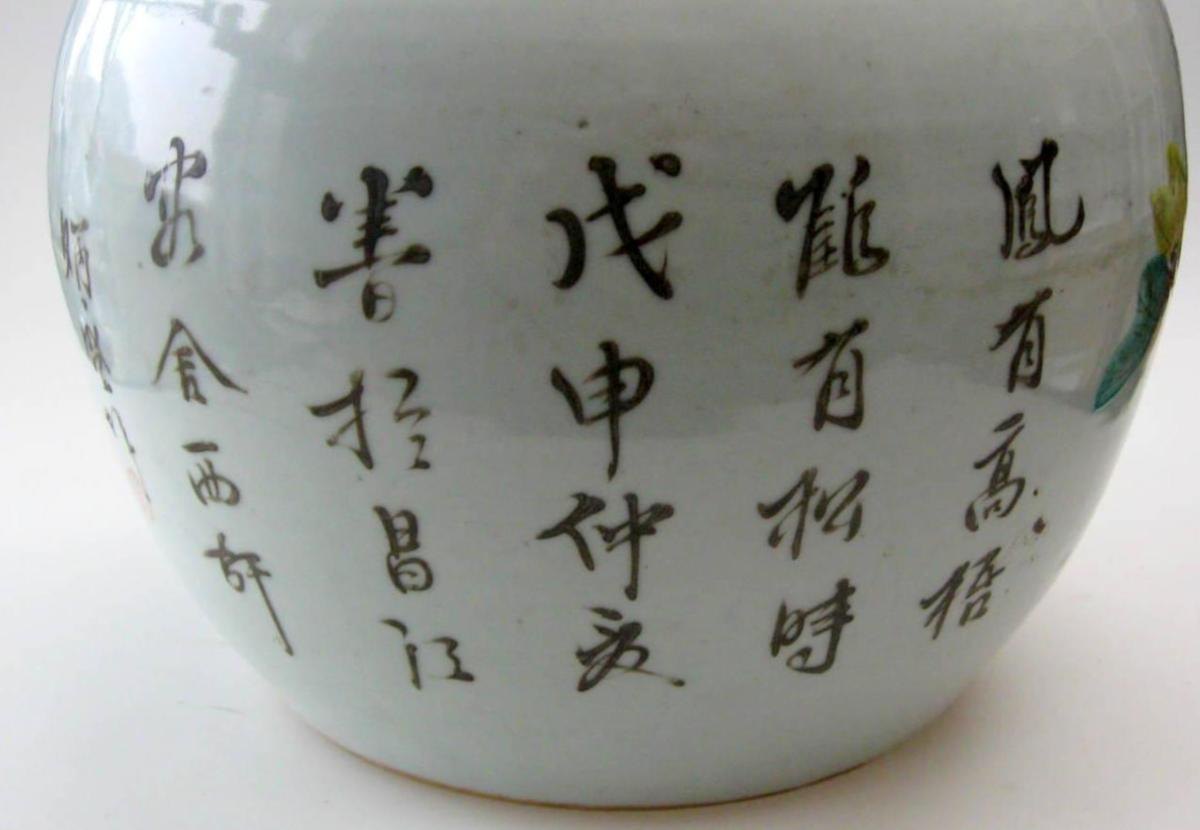 鳳有高梧
鶴有松時
戊申仲夏
書於昌江
客舍西軒